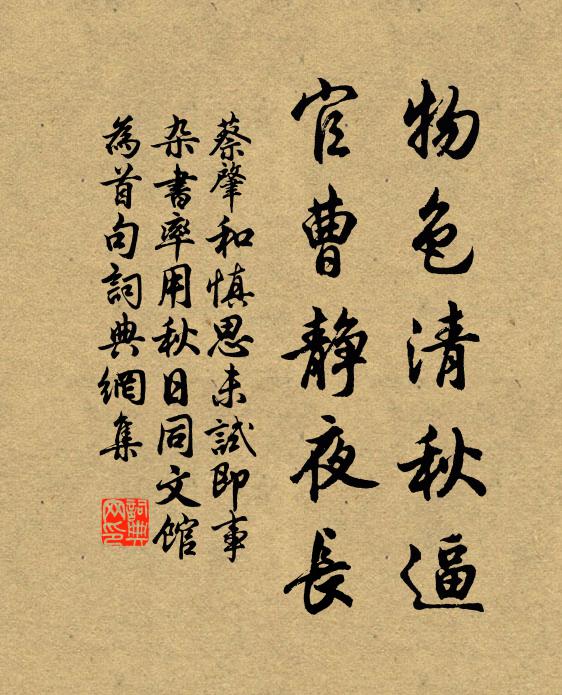 物色清秋逼
官曹静夜長
蔡肇和慎思未試即事
杂書率用秋日同文馆
為首句詞典網集
詞典网印